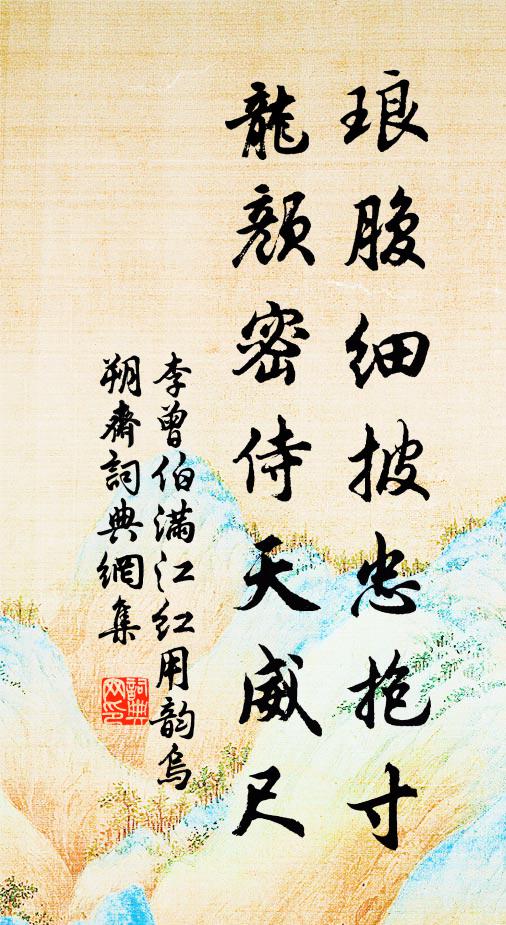 琅腹细披忠抱寸
龍顏密侍天威尺
李曾伯滿江红用韵烏
朔齋詞典網集
詞典網印